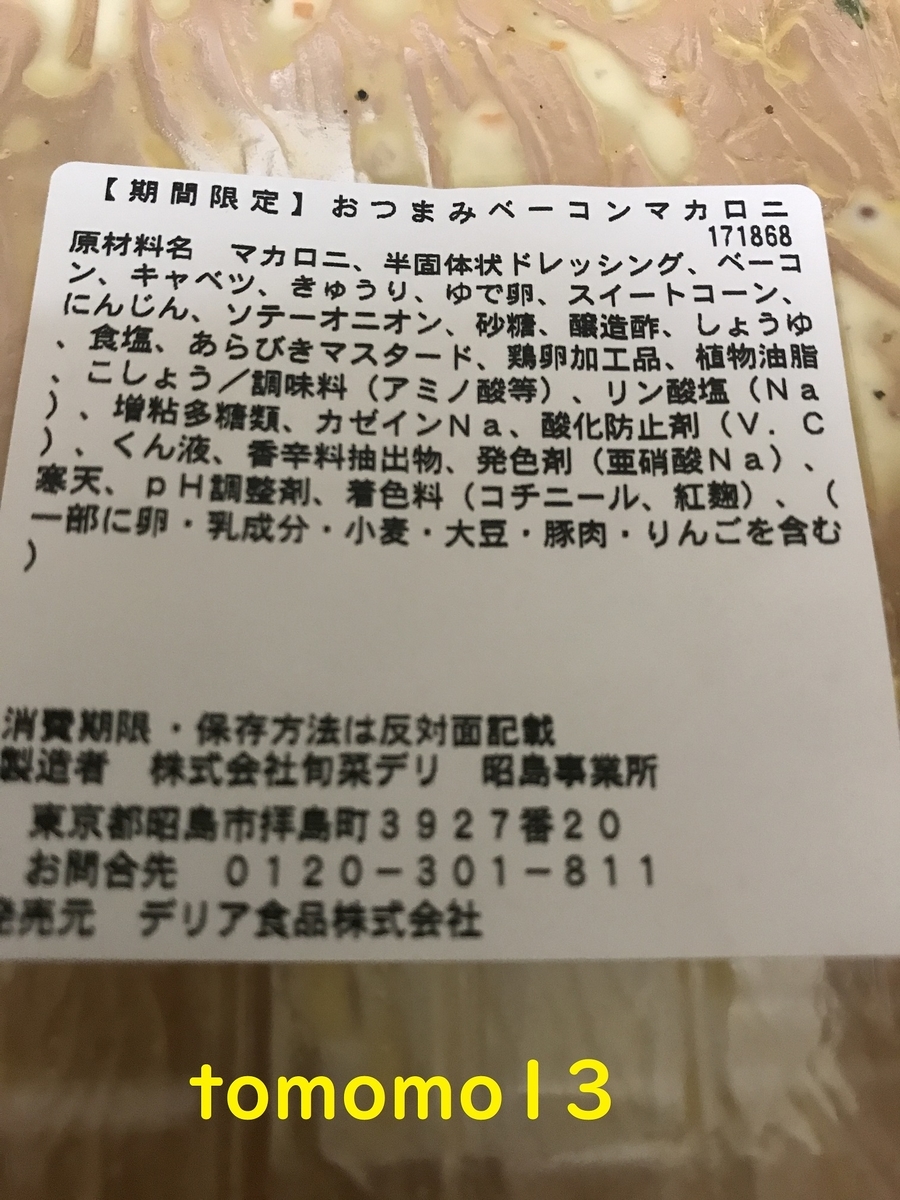 【期間限定】おつまみベーコンマカロニ
171868
原材料名　マカロニ、半固体状ドレッシング、ベーコ
ン、キャベツ、きゅうり、ゆで卵、スイートコーン、
にんじん、ソテーオニオン、砂糖、醸造酢、しょうゆ
、食塩、あらびきマスタード、鶏卵加工品、植物油脂
、こしょう／調味料（アミノ酸等）、リン酸塩（Ｎａ
）、増粘多糖類、カゼインＮａ、酸化防止剤（Ｖ．Ｃ
）、くん液、香辛料抽出物、発色剤（亜硝酸Ｎａ）、
寒天、ｐＨ調整剤、着色料（コチニール、紅麹）、（
一部に卵・乳成分・小麦・大豆・豚肉・りんごを含む
）
消費期限・保存方法は反対面記載
製造者　株式会社旬菜デリ　昭島事業所
東京都昭島市拝島町３９２７番２０
お問合先　０１２０－３０１－８１１
発売元　デリア食品株式会社
tomomo13